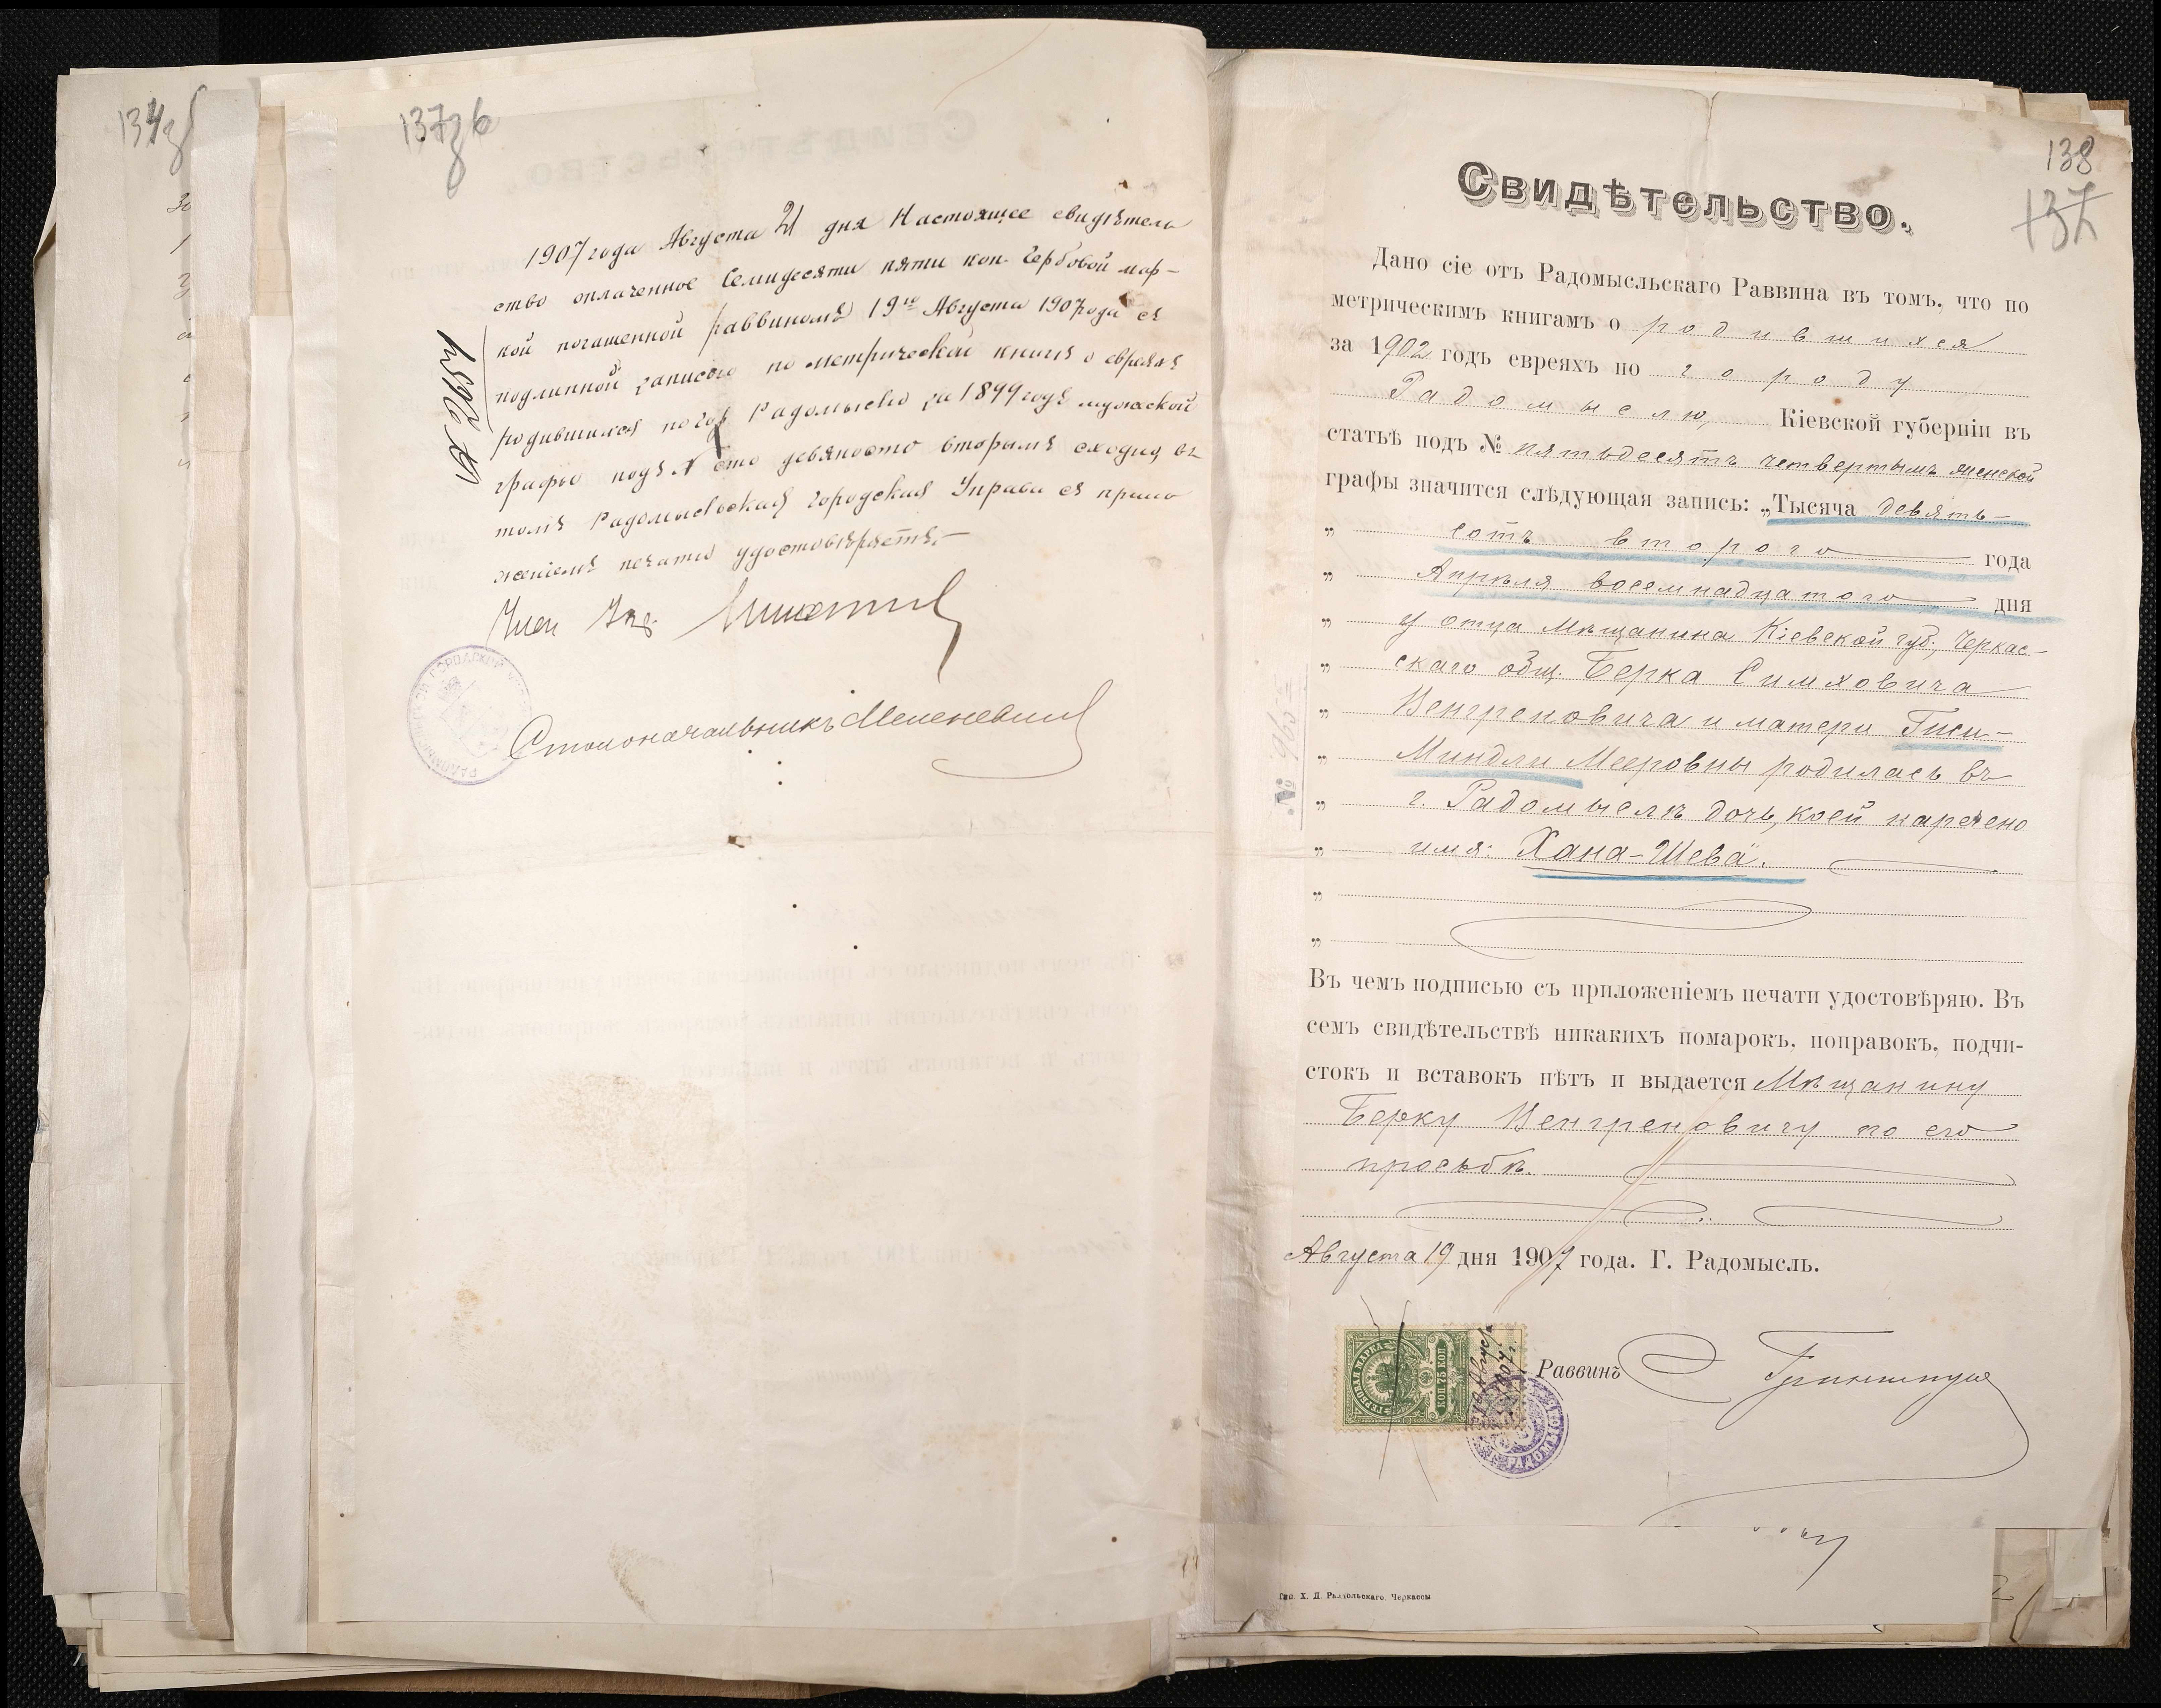 134зб
137зб
1907 года Августа 21 дня Настоящее свидѣтель
ство оплаченное Семидесяти пяти коп. Гербовой мар-
кой погашенной раввиномъ 19го Августа 1907 года съ
подлинной записью по метрической книгѣ о евреяхъ
родившихся по гор Радомыслю за 1899 годъ мужской
графы подъ № сто девяносто вторымъ сходно въ
томъ Радомысльская Городская Управа съ прило
женіемъ печати удостовѣряетъ.-
Член Упр.
Столоначальникъ Меленевский
138
137
Свидѣтельство.
Дано сіе отъ Радомысльскаго Раввина въ томъ, что по
метрическимъ книгамъ о родившихся
за 1902 годъ евреяхъ по городу
Радомыслю, Кіевской губерніи въ
статьѣ подъ № пятьдесятъ четвертымъ женской
графы значится слѣдующая запись: „Тысяча девять-
„ сотъ второго года
„ Апрѣля восемнадцатого дня
„ у отца Мѣщанина Кіевской губ., Черкас-
„ скаго общ. Берка Симховича
„ Венгреновича и матери Гиси-
„ Миндли Мееровны родилась въ
„ г. Радомыслѣ дочь, коей наречено
„ имя: Хана-Шева".
„
„
№ 965
Въ чемъ подписью съ приложеніемъ печати удостовѣряю. Въ
семъ свидѣтельствѣ никакихъ помарокъ, поправокъ, подчи-
стокъ и вставокъ нѣтъ и выдается Мѣщанину
Берку Венгреновичу по его
просьбѣ.
Августа 19 дня 1907 года. Г. Радомысль.
ГЕРБОВАЯ МАРКА
КОП. 75 КОП.
Раввинъ
Тип. Х. Д. Радольскаго. Черкассы